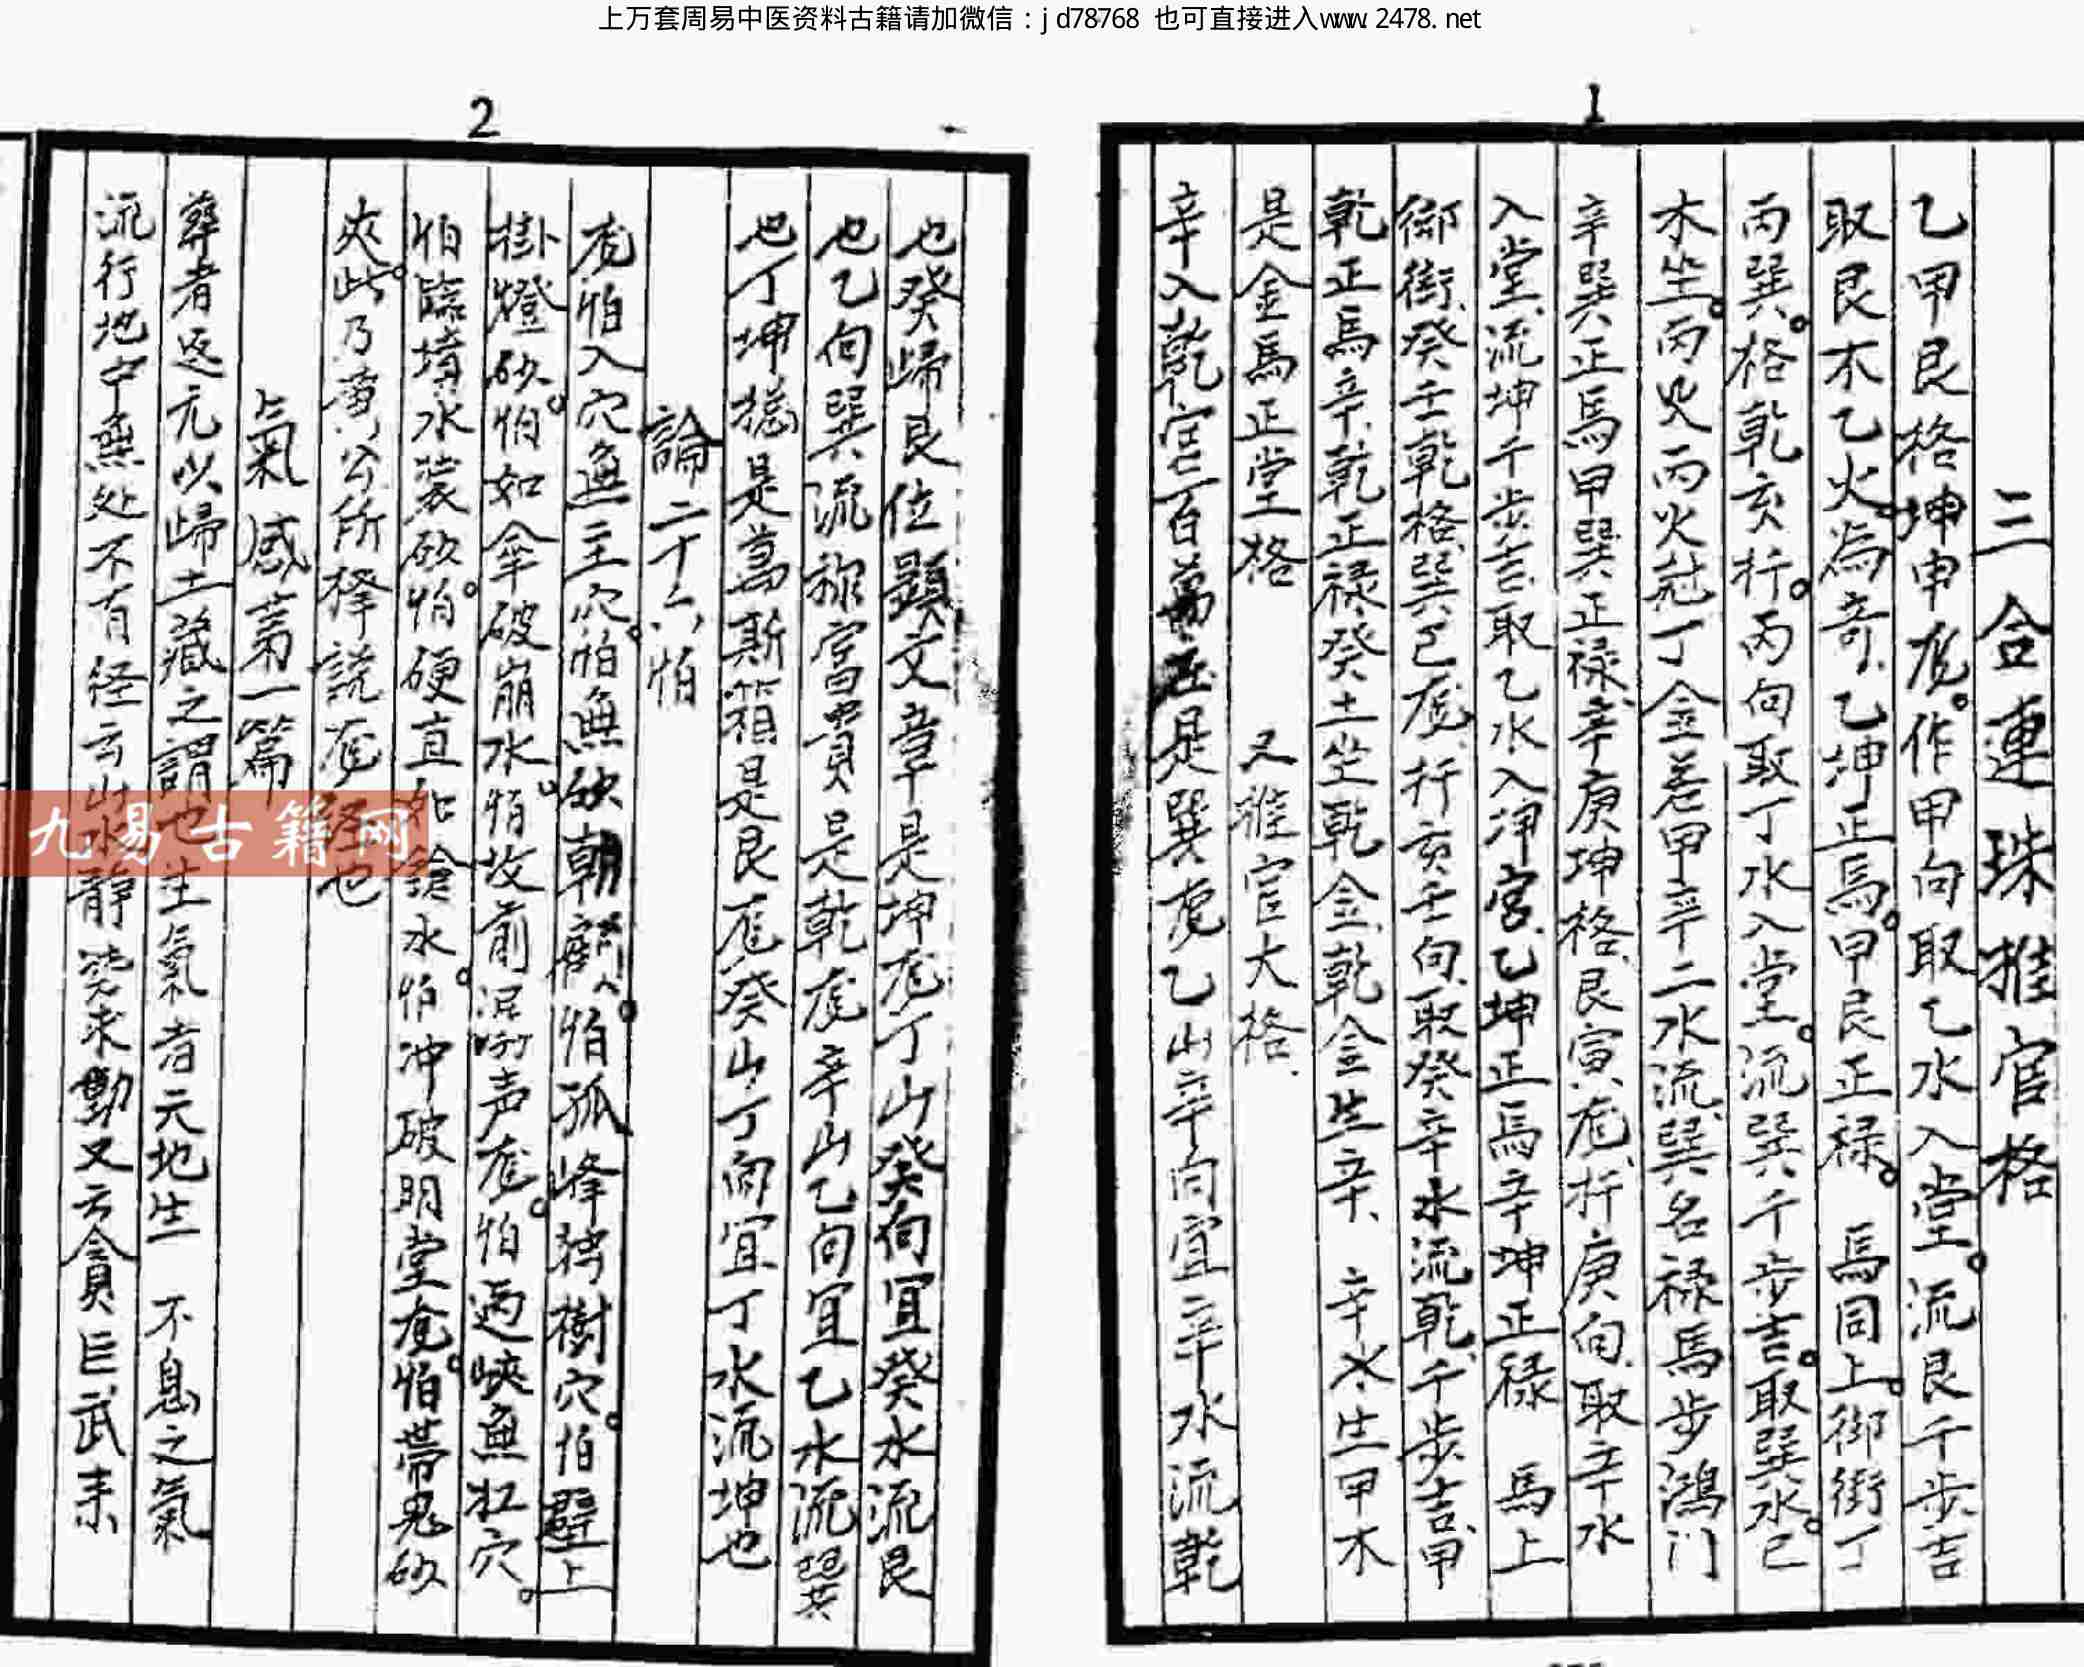 上万套周易中医资料古籍请加微信：jd78768 也可直接进入www.2478.net
1
三合連珠推官格
乙甲艮格坤申庞作甲向取乙水入堂流艮千步吉
取艮木乙火為奇乙坤正馬甲艮正禄 馬同上御街丁
丙巽格乾亥行丙向取丁水入堂流巽千步吉取巽水己
木坐丙火丙火冠丁金差甲辛二水流巽名禄馬步鴻门
辛巽正馬甲巽正禄辛庚坤格艮寅庞行庚向取辛水
入堂流坤千步吉取乙水入坤宮乙坤正馬辛坤正禄 馬上
御街癸壬乾格巽巳庞行亥壬向取癸辛水流乾千步吉甲
乾正馬辛乾正禄癸土坐乾金乾金生辛 辛水生甲木
是金馬正堂格 又推官大格
辛入乾宫百萬庄是巽庞乙山辛向宜辛水流乾
2
也癸歸艮位顕文章是坤庞丁山癸向宜癸水流艮
也乙向巽流称富貴是乾庞辛山乙向宜乙水流巽
也丁坤摠是萬斯箱是艮庞癸山丁向宜丁水流坤也
論二十六怕
庞怕入穴無主穴怕無砂朝顧怕孤峰独樹穴怕壁上
掛燈砂怕如傘破崩水怕坟前泪声庞怕過峽無扛穴
怕臨墳水裹砂怕硬直如鎗水怕冲破明堂庞怕帶鬼砂
夾此乃黄公所择説庞经也
氣感苐一篇
葬者返元以歸土藏之謂也生氣者天地生 不息之氣
流行地中無处不有径云山水靜求動又云貪巨武来
九易古籍网